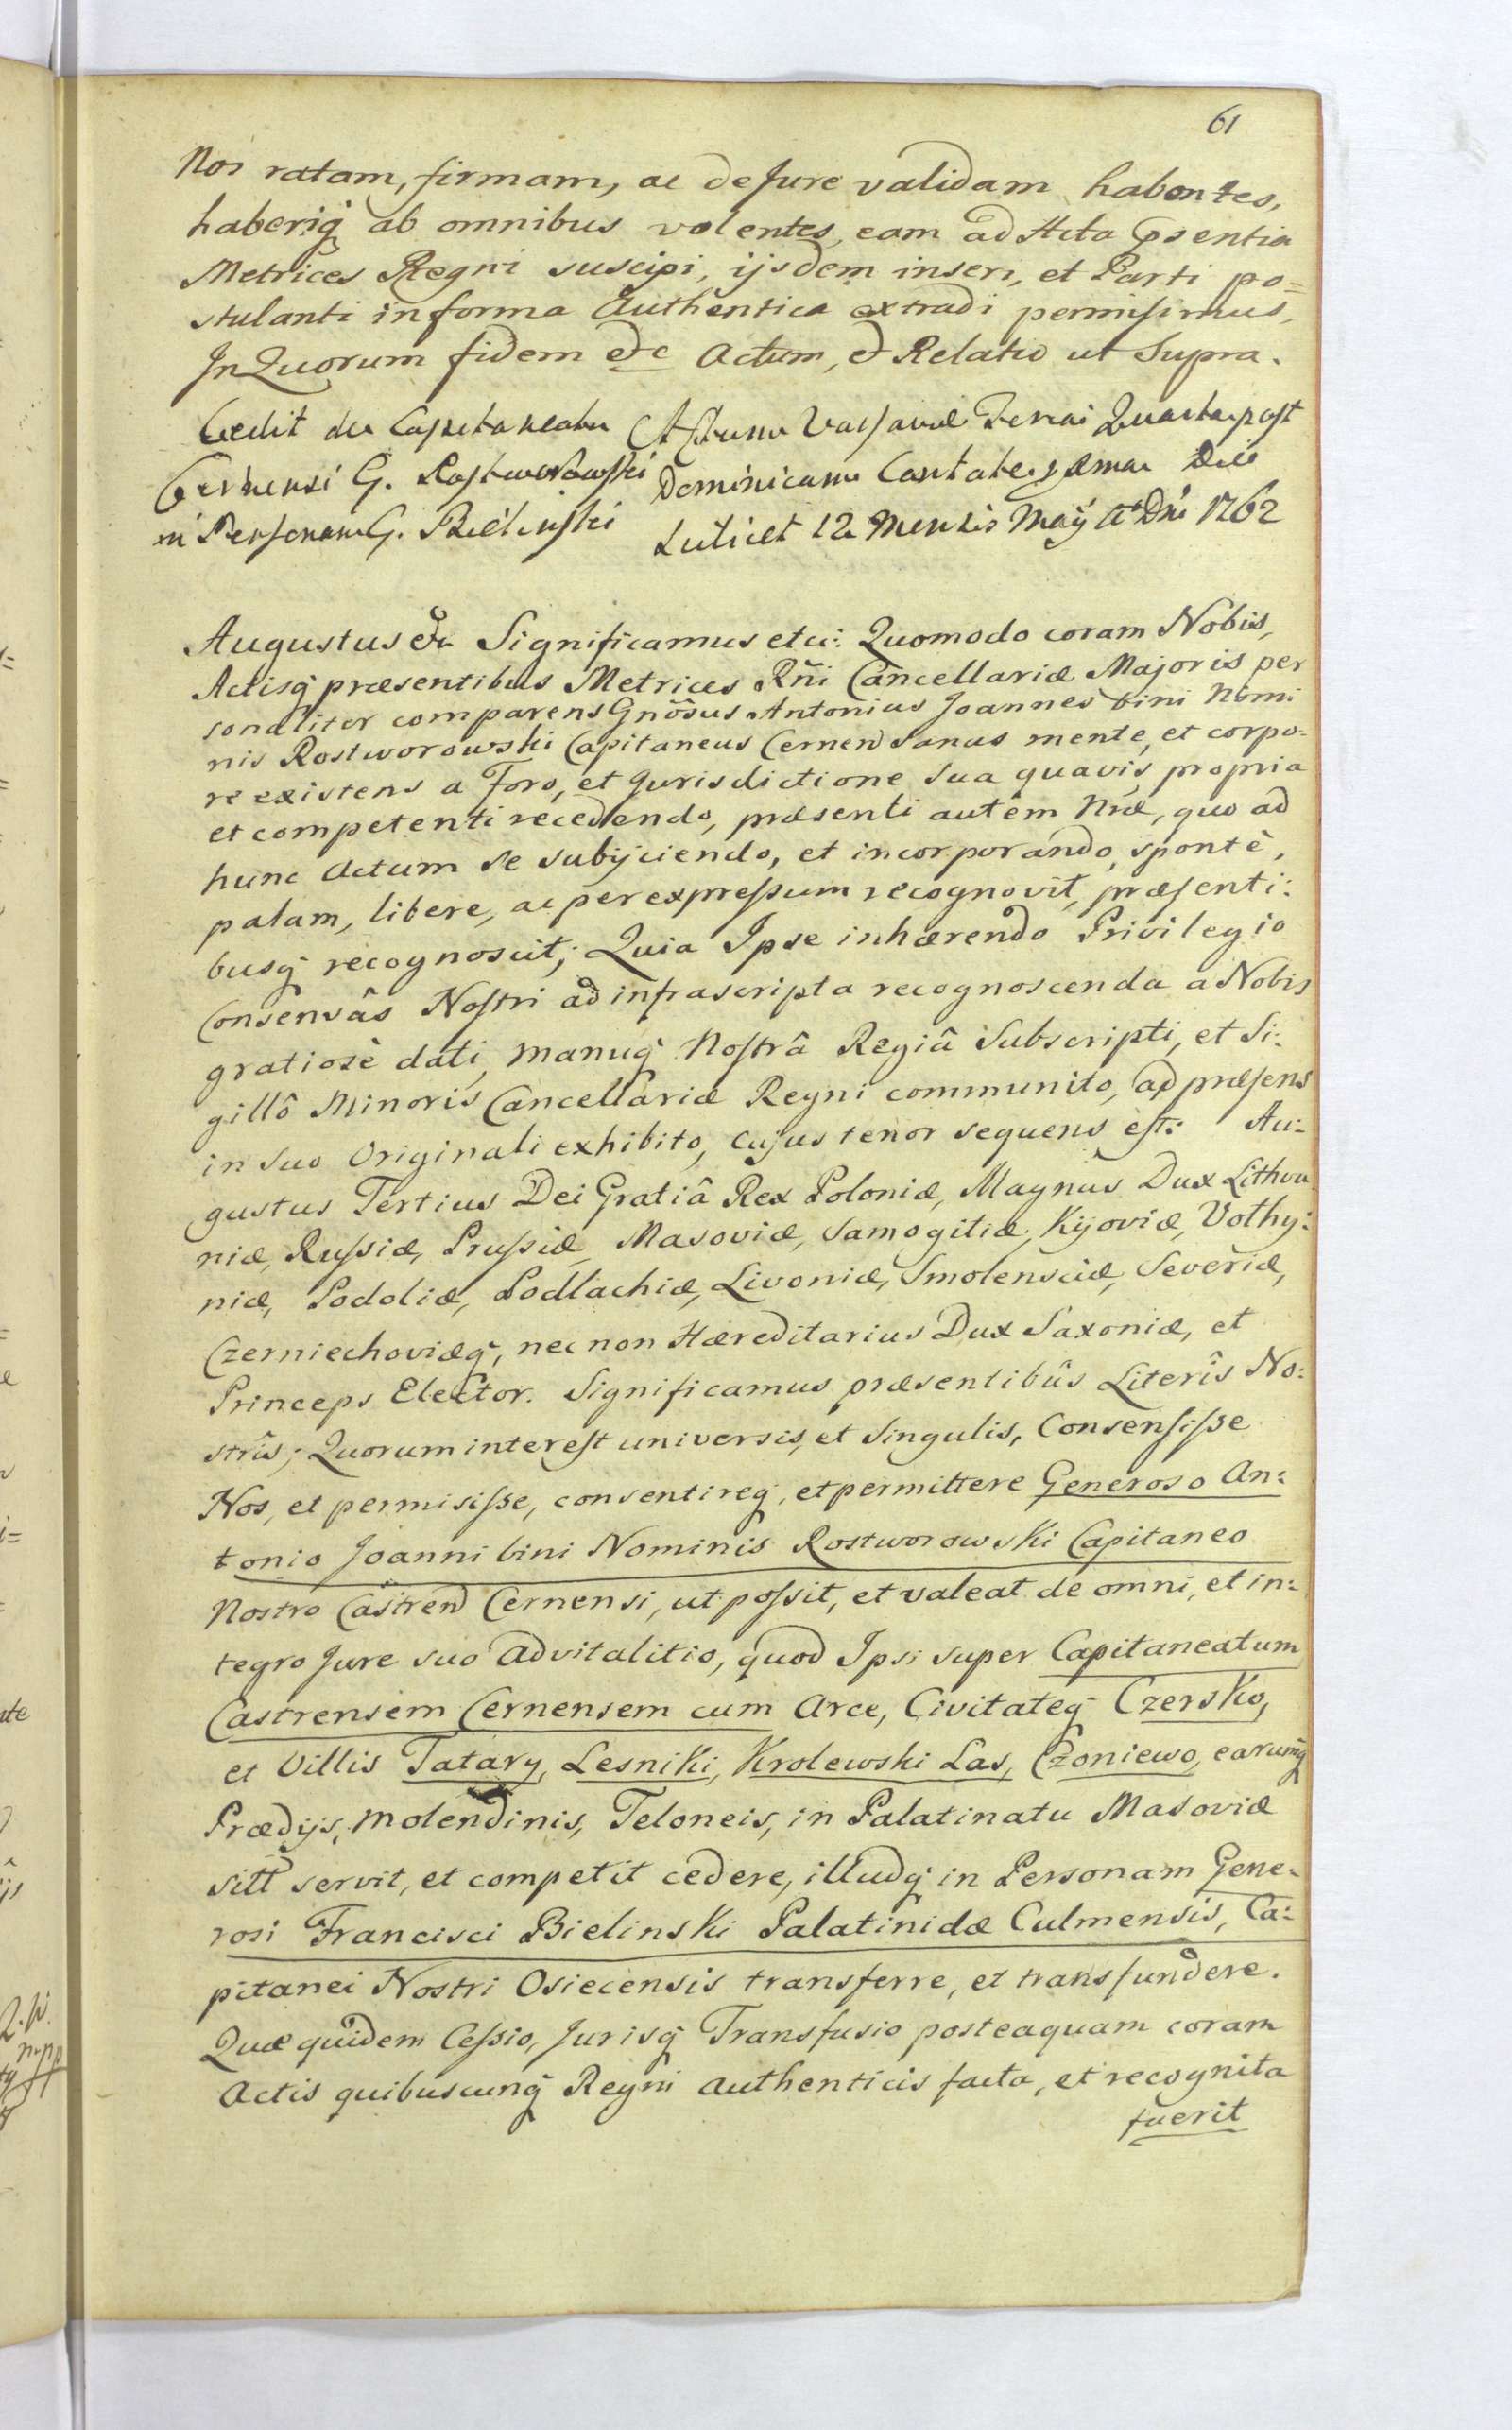 61
Nos ratam, firmam, ac de Jure validam habentes,
haberiq̃ ab omnibus volentes, eam ad Acta Psentia
Metrices Regni suscipi, ijsdem inseri, et Parti po=
stulanti in forma Authentica extradi permisimus,
In Quorum fidem etc Actum, et Relatio ut Supra.
Cedit de Capitaneatu
Cernensi G. Rostworowski
in Personam G. Bielinski
Actum Varsaviæ Feria Quarta post
Dominicam Cantate proxima die
scilicet 12 Mensis Maÿ A° Dni 1762
Augustus etc Significamus etc: Quomodo coram Nobis,
Actisq̃ præsentibus Metrices Rñi Cancellariæ Majoris per
sonaliter comparens Gnõsus Antonius Joannes bini Nomi
nis Rostworowski Capitaneus Cernen sanus mente, et corpo=
re existens a Foro, et Jurisdictione sua quavis, propria
et competenti recedendo, præsenti autêm Nræ, quo ad
hunc Actum se subijciendo, et incorporando, spontè,
palam, libere, ac per expressum recognovit, præsenti:
busq̃ recognoscit; Quia Ipse inhærendo Privilegio
Consensûs Nostri ad infrascripta recognoscenda a Nobis
gratiosè dati, manuq̃ Nostrâ Regiâ Subscripti, et Si:
gillô Minoris Cancellariæ Regni communito, ad præsens
in suo Originali exhibito, Cujus tenor sequens est: Au=
gustus Tertius Dei Gratiâ Rex Poloniæ, Magnus Dux Lithva
niæ, Russiæ, Prussiæ, Masoviæ, Samogitiæ, Kijoviæ, Volhy:
niæ, Podoliæ, Podlachiæ, Livoniæ, Smolensciæ, Severiæ,
Czerniechoviæq̃, nec non Hæreditarius Dux Saxoniæ, et
Princeps Elector. Significamus præsentibûs Literîs No:
strîs; Quorum interest universis, et Singulis, Consensisse
Nos, et permisisse, consentireq̃, et permittere Generoso An:
tonio Joanni bini Nominis Rostworowski Capitaneo
Nostro Castren Cernensi, ut possit, et valeat de omni, et in=
tegro Jure suo Advitalitio, quod Ipsi super Capitaneatum
Castrensem Cernensem cum Arce, Civitateq̃ Czersko,
et Villis Tatary, Lesniki, Krolewski Las, Czoniewo, earumq̃
Prædijs, Molendinis, Teloneis, in Palatinatu Masoviæ
sitt servit, et competit cedere, illudq̃ in Personam Gene=
rosi Francisci Bielinski Palatinidæ Culmensis, Ca:
pitanei Nostri Osiecensis transferre, et transfundere.
Quæ quidem Cessio, Jurisq̃ Transfusio posteaquam coram
Actis quibuscunq̃ Regni authenticis facta, et recognita
fuerit